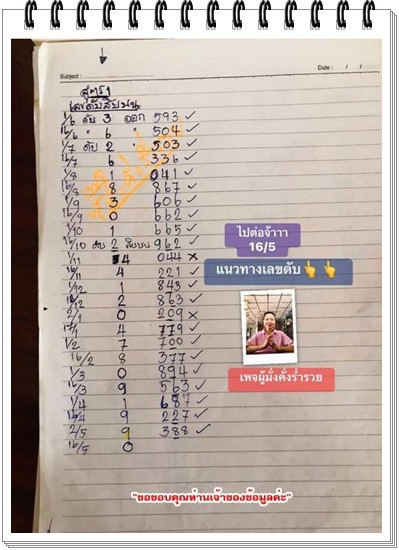 Date : / /
Subject :
สูตร 1
เลขดับสิบบน
1/6 ดับ 3 ออก 593 ✓
16/6 " 6 " 504 ✓
1/7 ดับ 2 " 503 ✓
16/7 6 336 ✓
1/8 1 041 ✓
16/8 8 867 ✓
1/9 3 606 ✓
16/9 0 662 ✓
1/10 1 665 ✓
16/10 ดับ 2 สิบบน 962 ✓
1/11 4 044 ×
16/11 4 221 ✓
1/12 1 843 ✓
16/12 2 863 ✓
2/1 0 209 ×
17/1 4 779 ✓
1/2 7 700 ✓
16/2 8 377 ✓
1/3 0 894 ✓
16/3 9 563 ✓
1/4 1 687 ✓
16/4 9 227 ✓
2/5 9 388 ✓
16/5 0
ไปต่อจ้าาา
16/5
แนวทางเลขดับ👆👆
เพจผู้มั่งคั่งร่ำรวย
"ขอขอบคุณท่านเจ้าของข้อมูลค่ะ"